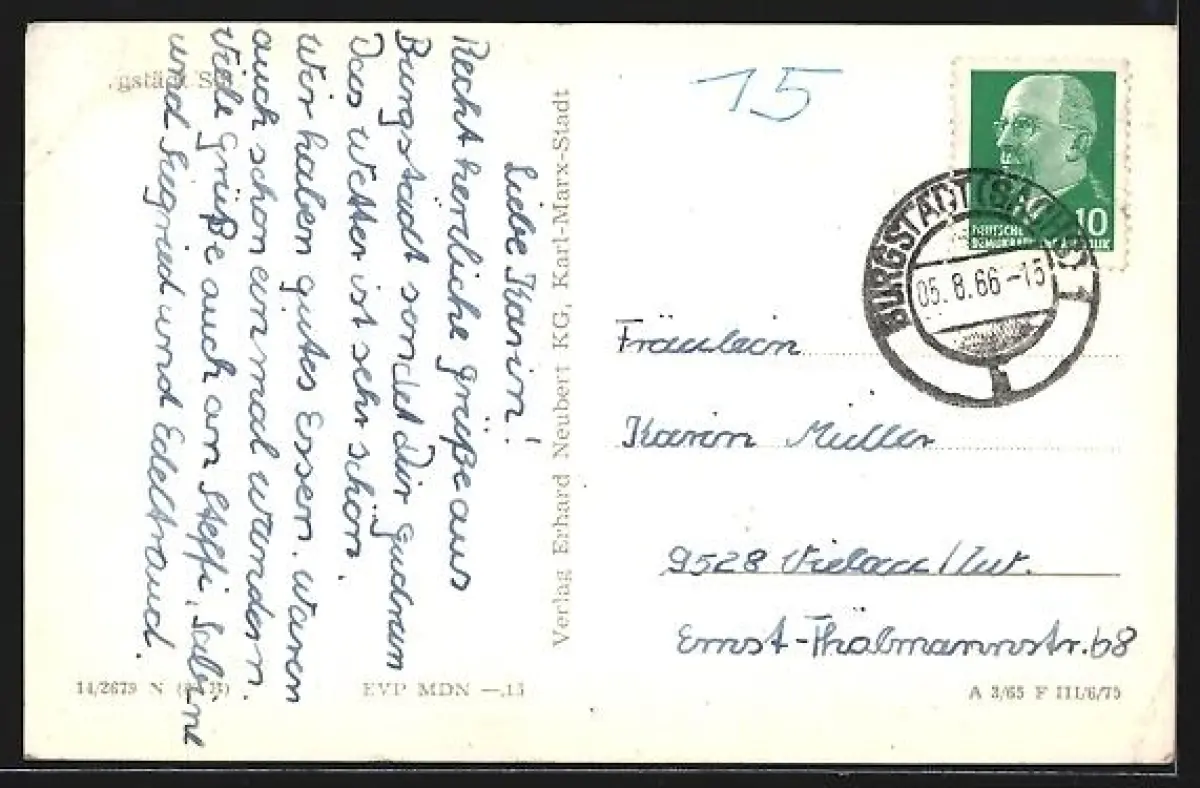 Liebe Karin!
Recht herzliche Grüße aus
Burgstädt sendet Dir Gudrun
Das Wetter ist sehr schön.
Wir haben gutes Essen. Waren
auch schon einmal wandern.
Viele Grüße auch an Steffi, Sabine
und Sigrid und Edeltraud.
gstädt S
14/2679 N
EVP MDN —,15
Verlag Erhard Neubert KG, Karl-Marx-Stadt
15
10
DEUTSCHE
BURGSTÄDT (SACHS) 1
05.8.66-15
Fräulein
Karin Müller
9528 Vielau/Zw.
Ernst-Thälmannstr. 68
A 3/65 F III/6/75